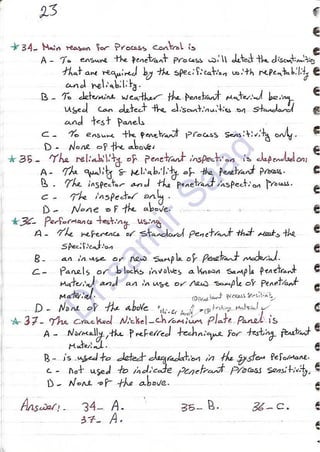 23
* 34- Main reason for Process control is
A - To ensure the penetrant Process will detect the discontinuities
that are required by the specification with repeatability
and reliability.
B - To determine weather the Penetrant Material being
used can detect the discontinuities on standard
and test Panels
C - To ensure the penetrant process sensitivity only.
D - None of the above.
* 35- The reliability of penetrant inspection is dependedon:
A- The quality & reliability of the Penetrant Process.
B. The inspector and the penetrant inspection Process.
C - The inspector only.
D - None of the above.
* 36- Performance testing using
A - The reference or standard penetrant that meets the
specification
B- an in use or new sample of Penetrant material.
C- Panels or blocks involves a known sample penetrant
Material and an in use or new sample of Penetrant
Material.
process sensitivity
D- None of the above.
* 37- The Cracked Nickel-chromium Plate Panel is
A - Normally the Preferred technique for testing Penetrant
Material.
B - is used to detect degradation in the system Peformane.
C - not used to indicate penetrant Process sensitivity,
D - None of the above.
Answer:- 34- A. 35- B. 36- C.
37- A.